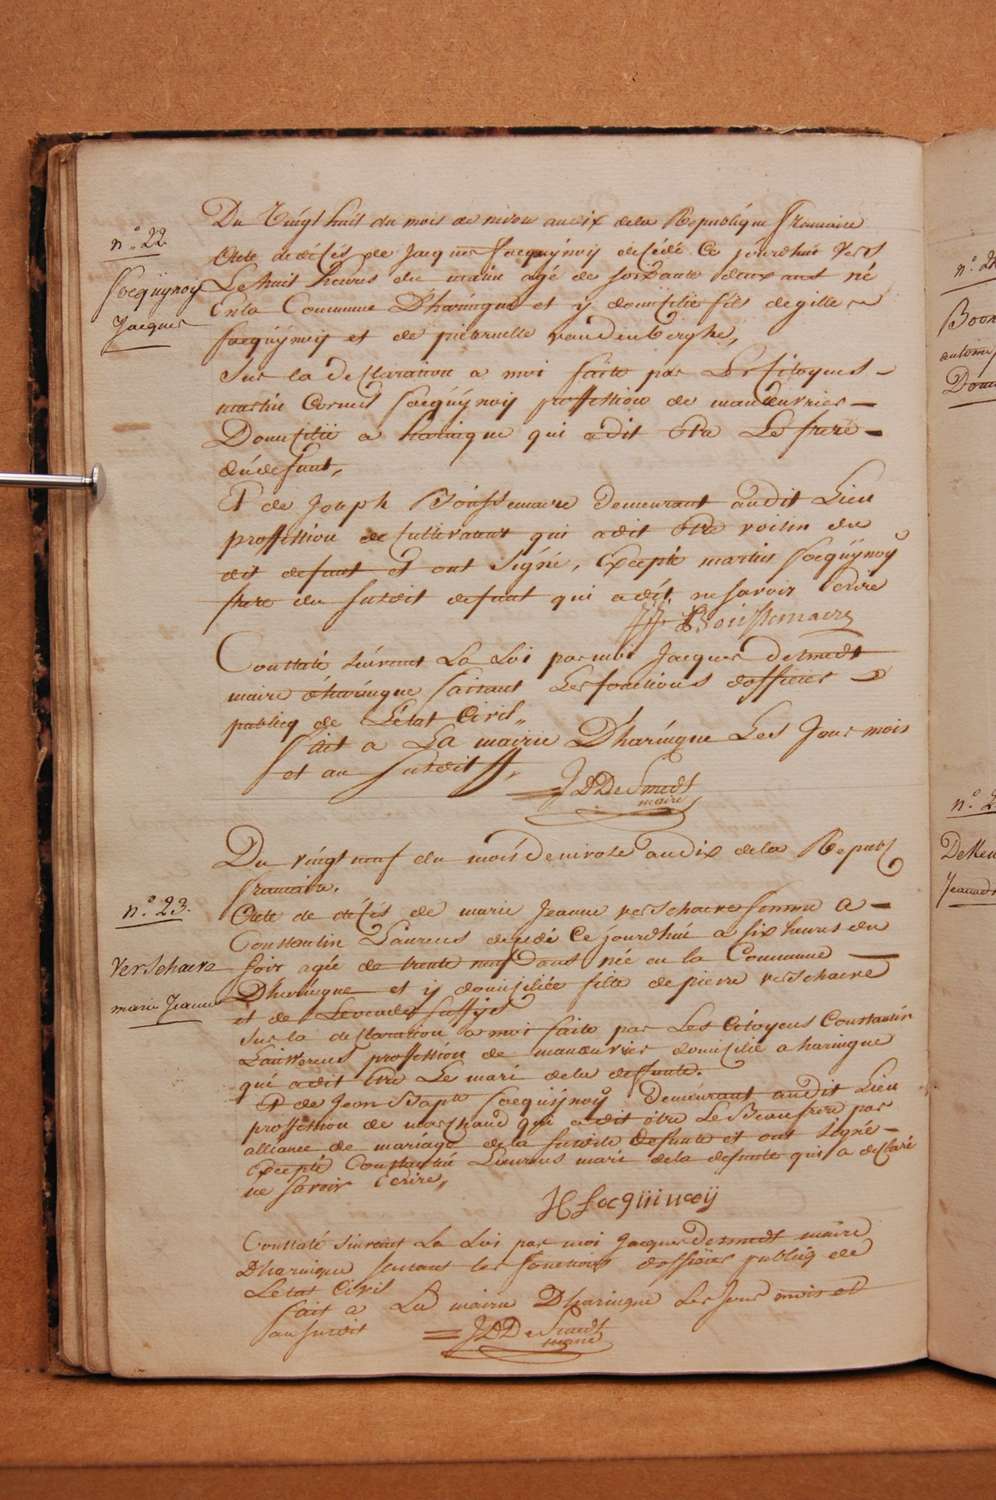 n.° 22.
Socquÿnoy
Jacques
Du Vingt huit du mois de nivose an dix de la Republique Francaise
Acte de décés de Jacques Socquÿnoy decédé Ce jourdhui vers
Le huit heures du matin agé de soixante deux ans né
En la Commune D'haringue et y domicilié fils de gille
Socquÿnoy et de petronelle vandenberghe,
Sur la declaration a moi faite par Les Citoyens
martin Corneil Socquÿnoy proffession de manœuvrier
Domicilié a haringue qui a dit étre Le frere
du defunt,
Et de Joseph Boussemaere demeurant audit Lieu
proffession de Cultivateur qui a dit étre voisin du
dit defunt et ont signé, Excepté martin Socquÿnoy
frere du susdit defunt qui a dit ne savoir Ecrire
Boussemaere
Constaté suivant La Loi par moi Jacques desmedt
maire d'haringue faisant Les fonctions d'officier
publicq de L'état Civil,,
fait a La mairie D'haringue Les Jour mois
et an susdit
J D De Smedt
maire
n.° 23.
Verschaere
marie Jeanne
Du vingt neuf du mois de nivose an dix de la Republ
francaise.
Acte de décés de marie Jeanne verschaere femme a
Constantin Laureus decedé Ce jourdhui a six heures du
soir agée de trente neuf ans née en la Commune
D'haringue et y domiciliée fille de pierre verschaere
et de
Sur la declaration a moi faite par Les Citoyens Constantin
proffession de manœuvrier domicilié a haringue
qui a dit étre Le mari de la defunte.
Et de Jean Bapte Socquÿnoy demeurant audit Lieu
proffession de marchand qui a dit étre Le Beaufrere par
alliance de mariage de la susdite defunte et ont signé
excepté Constantin mari de la defunte qui a declaré
ne savoir Ecrire,
Socquinoÿ
Constaté suivant La Loi par moi Jacques desmedt maire
D'haringue faisant les fonctions d'officier publicq de
L'etat Civil
fait a La mairie D'haringue Les Jour mois et
an susdit
J D De Smedt
maire
n.° 2
Boon
antoine
n.° 2